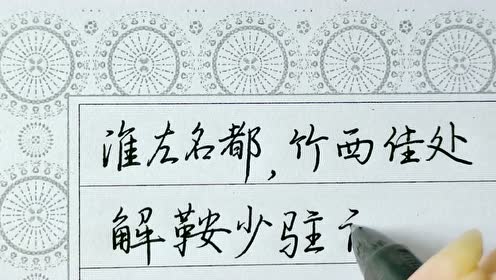 淮左名都,竹西佳处
解鞍少驻